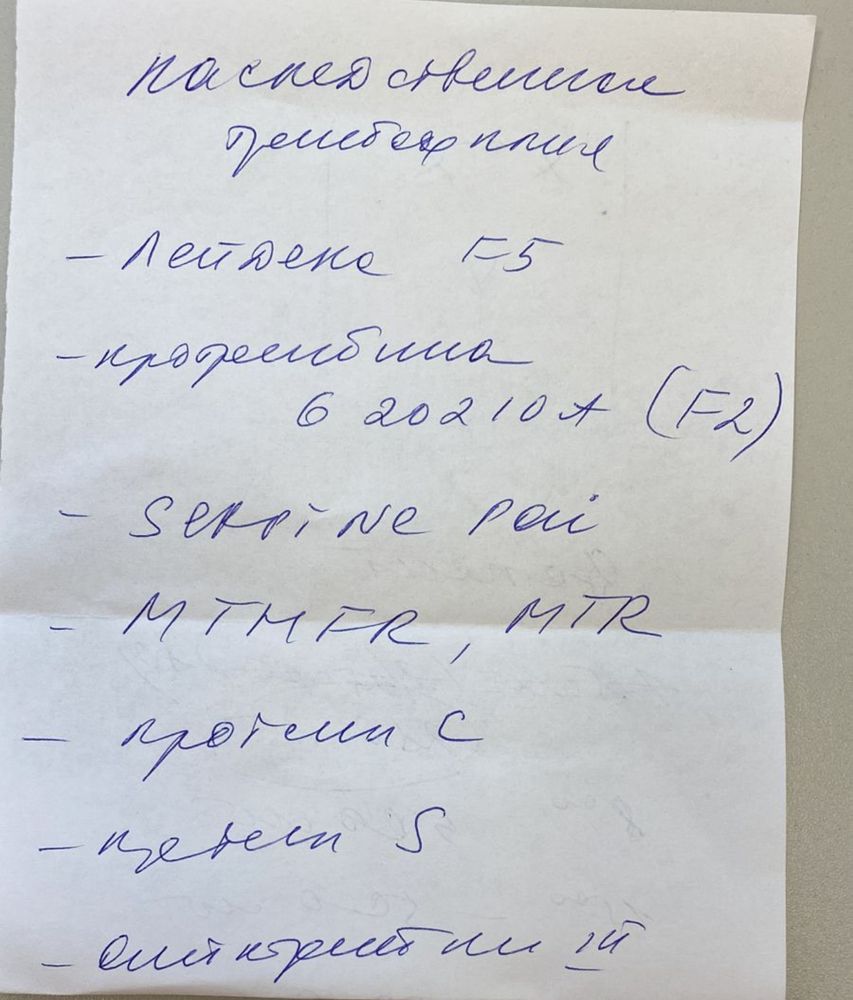 наследственная
тромбофилия
- Лейдена F5
- протромбина
G 20210 A (F2)
- SERPINE PAi
- MTHFR, MTR
- протеин C
- протеин S
- антитромбин III